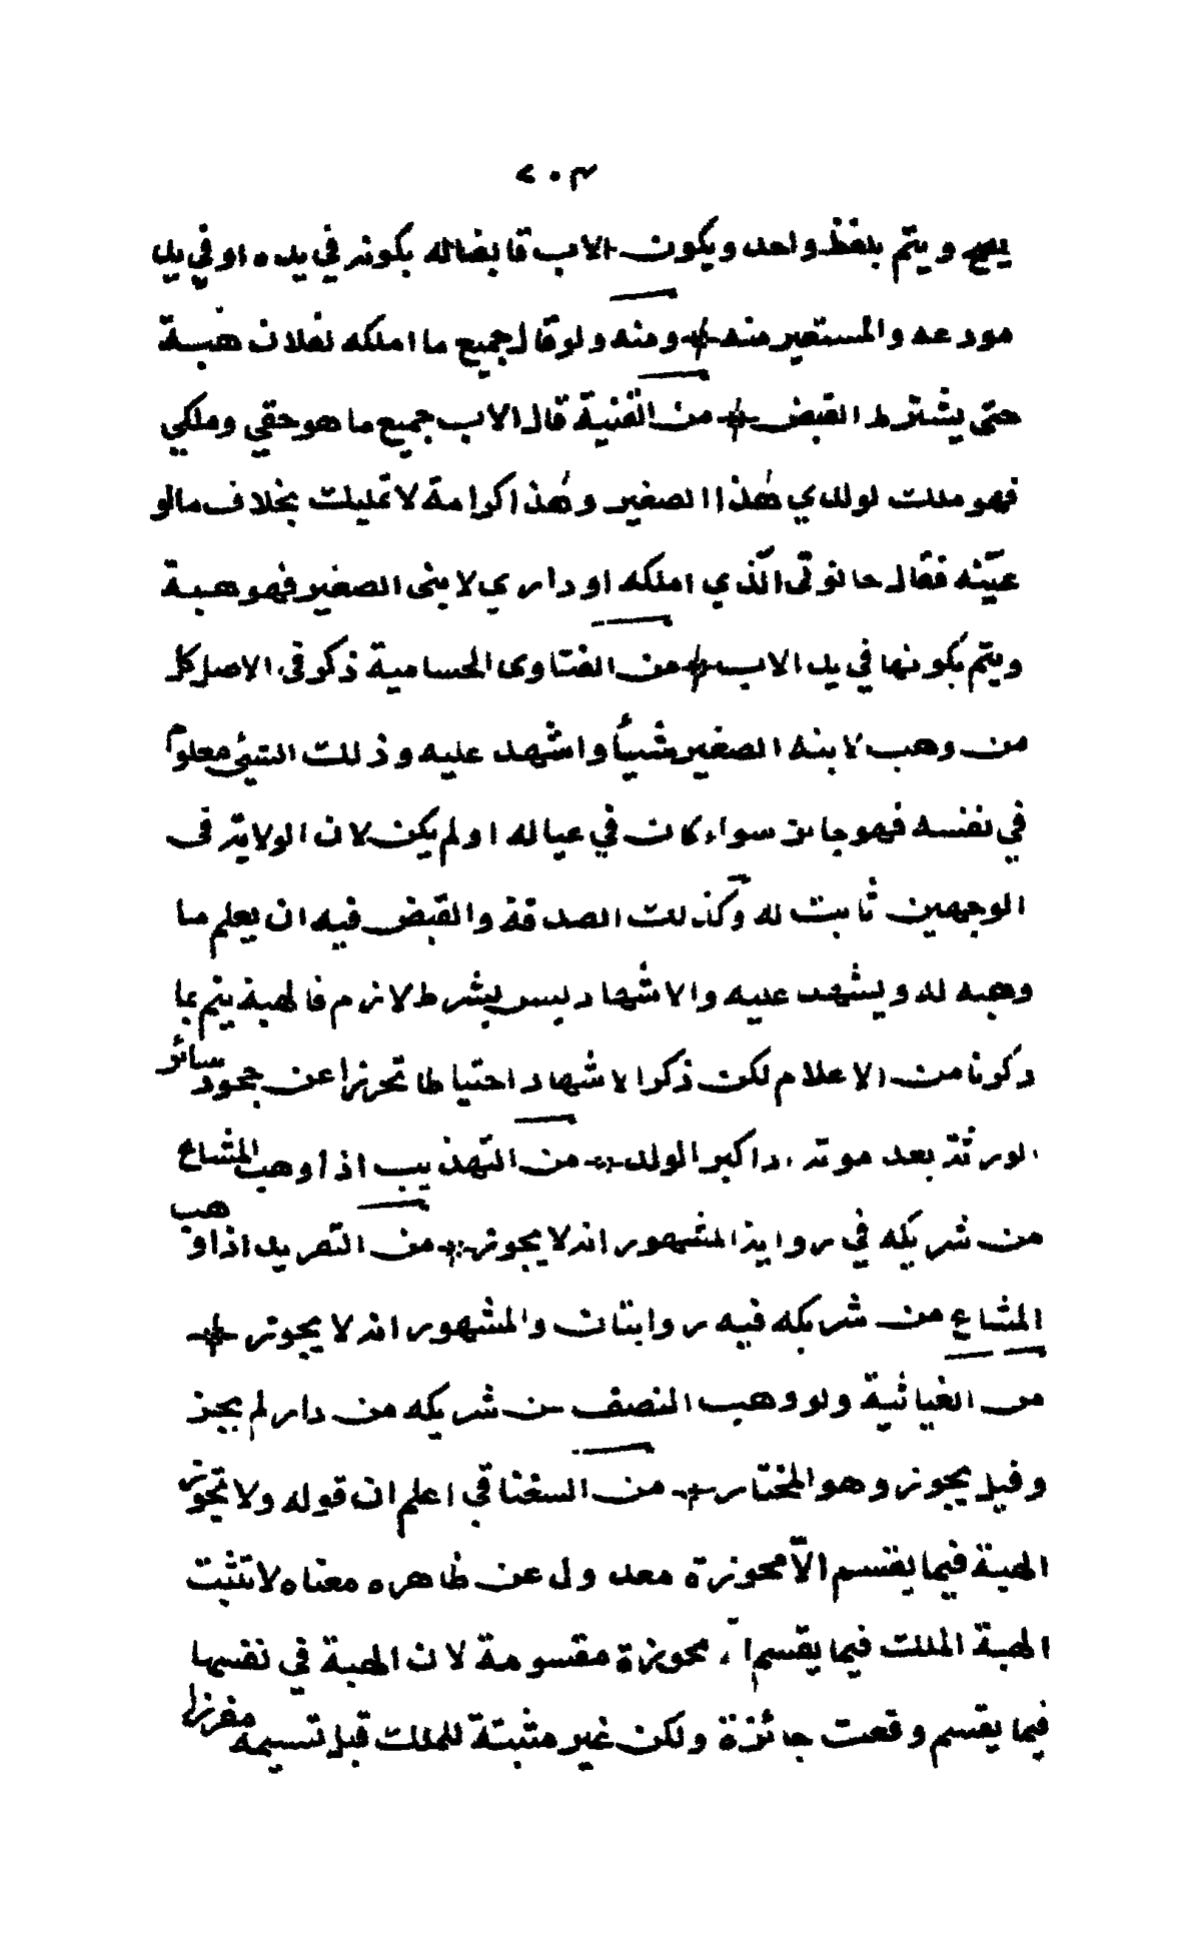 ٢٠٣
يصح ويتم بلفظ واحد ويكون الاب قابضا له بكونه في يده او في يد
مودعه والمستعير منه ومنه ولو قال جميع ما املكه لفلان هبة
حتى يشترط القبض من القنية قال الاب جميع ما هو حقي وملكي
فهو ملك لولدي هذا الصغير وهذا كرامة لا تمليك بخلاف ما لو
عيّنه فقال حانوتى الّذي املكه او داري لابنى الصغير فهو هبة
ويتم بكونها في يد الاب من الفتاوى الحسامية ذكر فى الاصل كل
من وهب لابنه الصغير شيأ واشهد عليه وذلك الشيئ معلوم
في نفسه فهو جائز سواء كان في عياله او لم يكن لان الولاية فى
الوجهين ثابت له وكذلك الصدقة والقبض فيه ان يعلم ما
وهبه له ويشهد عليه والاشهاد ليس بشرط لازم فالهبة يتم بما
ذكرنا من الاعلام لكن ذكر الاشهاد احتياطا تحرزا عن جحود سائر
الورثة بعد موته اذا كبر الولد من التهذيب اذا وهب المشاع
من شريكه في رواية المشهور انه لا يجوز من التفريد اذا وهب
المشاع من شريكه فيه روايتان والمشهور انه لا يجوز
من الغياثية ولو وهب النصف من شريكه من دار لم يجز
وقيل يجوز وهو المختار من السغناقي اعلم ان قوله ولا تجوز
الهبة فيما يقسم الّا محوزة معدول عن ظاهره معناه لا تثبت
الهبة الملك فيما يقسم الّا محوزة مقسومة لان الهبة في نفسها
فيما يقسم وقعت جائزة ولكن غير مثبتة للملك قبل تسيمه مفرزا